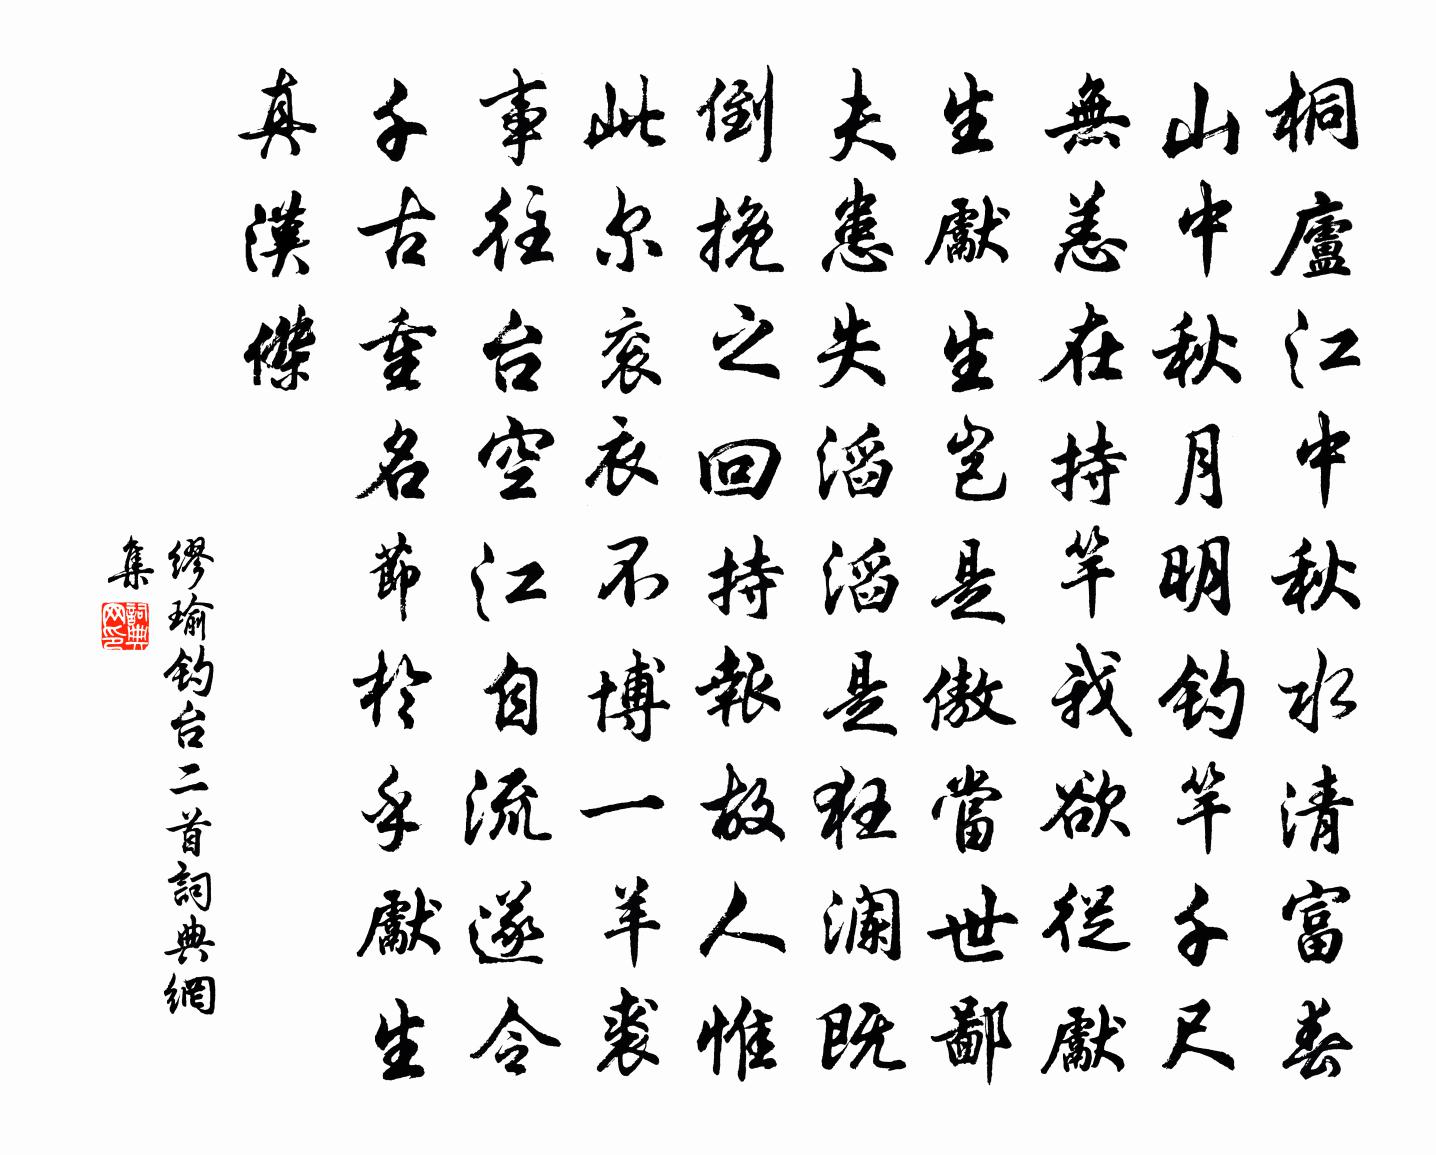 桐廬江中秋水清富春
山中秋月明釣竿千尺
無恙在持竿我欲從獻
生獻生豈是傲當世鄙
夫患失滔滔是狂瀾既
倒挽之回持報故人惟
此尔衮衣不博一羊裘
事往台空江自流遂令
千古重名節於乎獻生
真漢傑
繆瑜釣台二首詞典網
集
詞典
网印